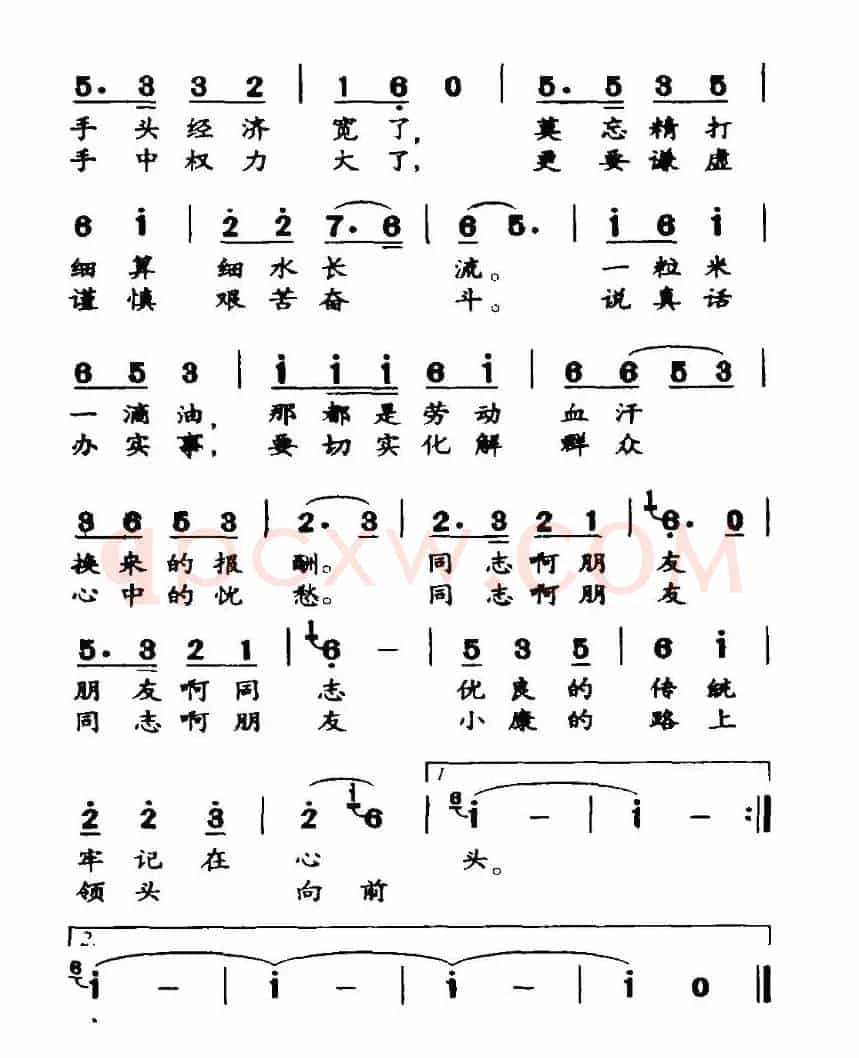 5. 3 3 2 | 1 6 0 | 5. 5 3 5 |
手头经济 宽了, 莫忘精打
手中权力 大了, 更要谦虚
6 i | 2 2 7. 6 | 6 5. | i 6 i |
细算 细水长 流。 一粒米
谨慎 艰苦奋 斗。 说真话
6 5 3 | i i i 6 i | 6 6 5 3 |
一滴油, 那都是劳动 血汗
办实事, 要切实化解 群众
3 6 5 3 | 2. 3 | 2. 3 2 1 | 1 6. 0 |
换来的报 酬。 同志啊朋 友
心中的忧 愁。 同志啊朋 友
qpcxw.com
5. 3 2 1 | 1 6 – | 5 3 5 | 6 i |
朋友啊同 志 优良的 传统
同志啊朋 友 小康的 路上
1.
2 2 3 | 2 i 6 | 6 i – | i – :||
牢记在 心 头。
领头 向前
2.
6 i – | i – | i – | i 0 ||